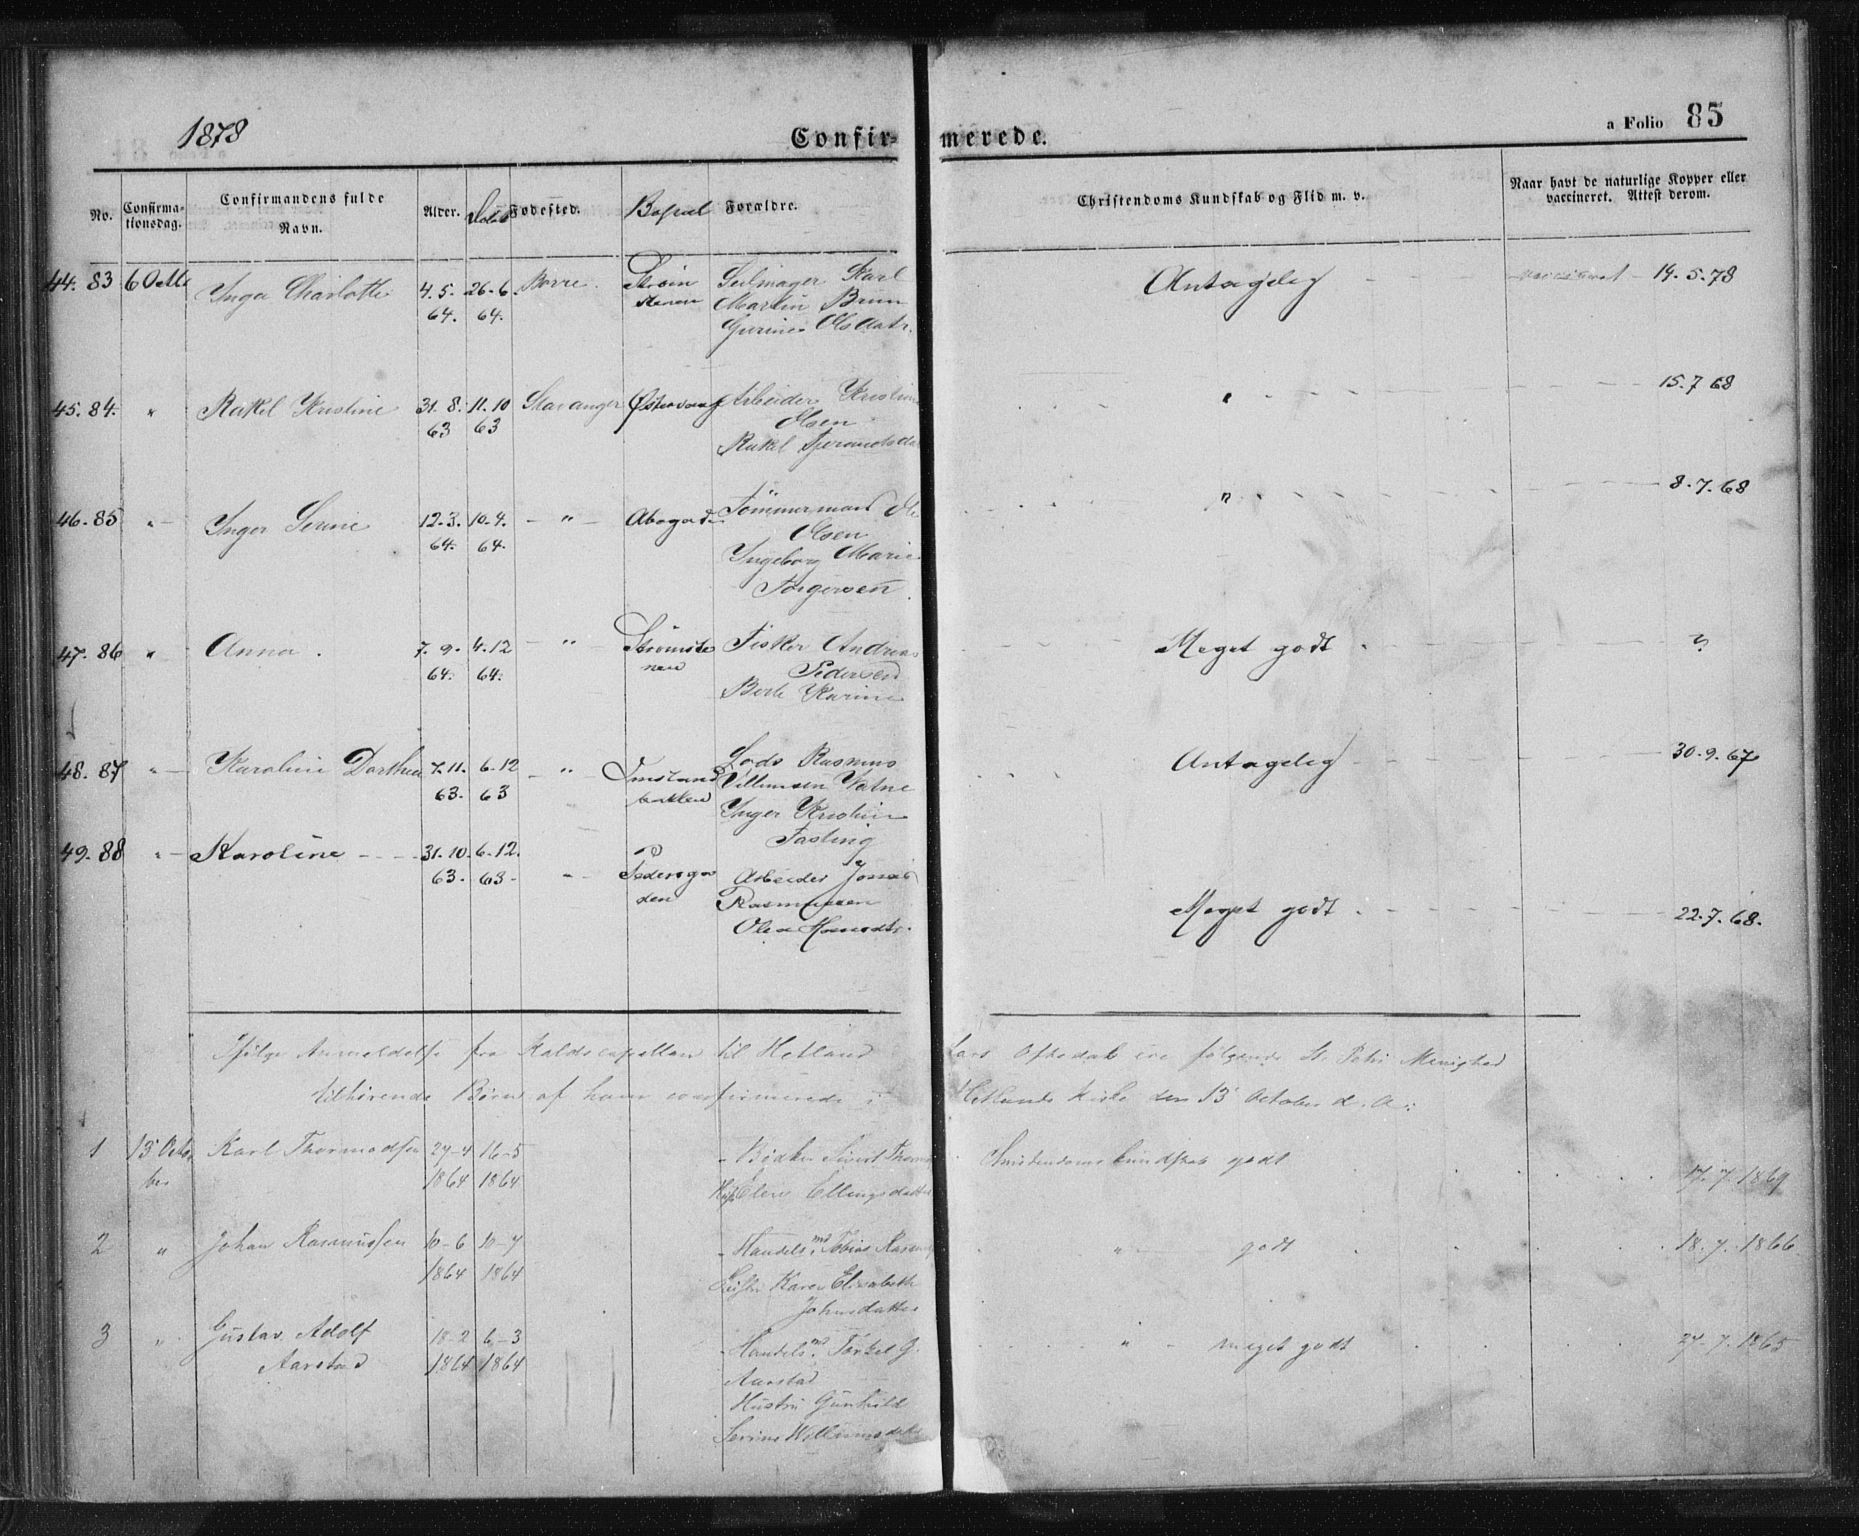 1878
Confirmerede.
a Folio 85
No.
Confirmationsdag.
Confirmandens fulde Navn.
Alder.
Daab
Fødested.
Bopæl
Forældre.
Christendoms Kundskab og Flid m. v.
Naar havt de naturlige Kopper eller vaccineret. Attest derom.
44. 83 6 Octb Inga Charlotte 4.5. 26-6. Borre. Strøm Seilmager Karl Antagelig vaccineret 19.5.78
64. 64. stenen Martin Brun
Gurine Olsdatr.
45. 84. " Rakel Kristine 31.8. 11.10 Stavanger Østervaag Arbeider Kristian " 15.7 68
63 63 Olsen
Rakel Tjerandsda
46. 85 " Inger Serine 12.3. 10.4. " Abegad Tømmermand Ole " 8.7.68
64. 64. Olsen
Ingeborg Marie
Torgersen
47. 86 " Anna. 7.9. 4.12 " Strømste Fisker Andreas Meget godt ?
64. 64. nen Pedersen
Berte Karine
48. 87 " Karoline Dorthea 7.11. 6.12 " Imsland Lods Rasmus Antagelig 30.9.67
63. 63 bakken Villumsen Vatne
Inger Kristine
Fasting
49. 88 " Karoline 31.10. 6.12. " Pedersga Arbeider Jonas Meget godt 22.7.68.
63. 63. den Rasmussen
Olea
Ifølge Anmeldelse fra Kaldscapellan til Hetland Lars Oftedal ere følgende St. Petri Menighed
tilhørende Børn af ham confirmerede i Hetlands Kirke den 13 October d. A.:
1 13 Octo Karl Thormodsen 27-4 16-5 Bødker Sivert Thorm Christendomskundskab godt 17.7.1869
ber 1864 1864 Elen Ellingsdatter
2 " Johan Rasmussen 10-6 10-7 Handelsmd Tobias Rasmus " godt 18.7.1866
1864 1864 Karen Elisabeth
Johnsdatter
3 " Gustav Adolf 18-2 6-3 Handelsmd Torkel G. " meget godt 24.7.1865
Aarstad 1864 1864 Aarstad
Hustru Gunhild
Serine Willumsdatr